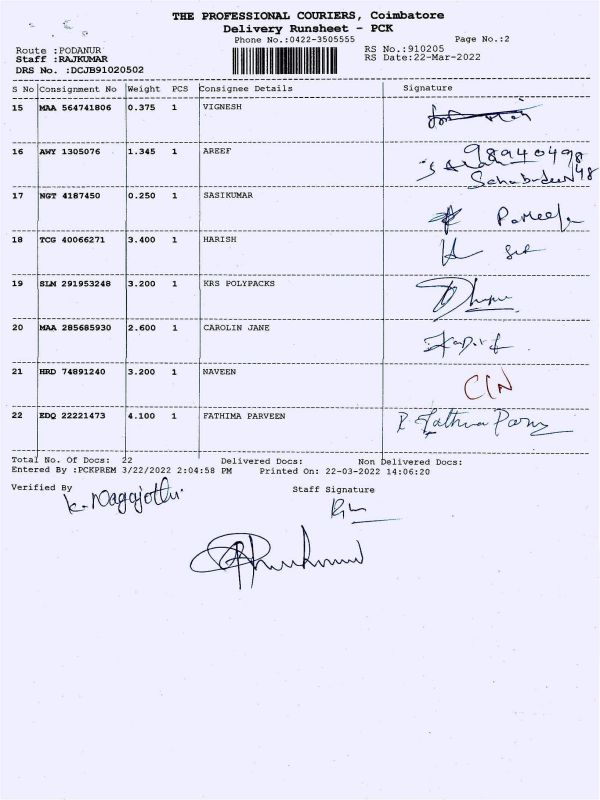 THE PROFESSIONAL COURIERS, Coimbatore
Delivery Runsheet - PCK
Phone No.:0422-3505555 Page No.:2
Route :PODANUR RS No.:910205
Staff :RAJKUMAR RS Date:22-Mar-2022
DRS No. :DCJB91020502
S No Consignment No Weight PCS Consignee Details Signature
15 MAA 564741806 0.375 1 VIGNESH
16 AWY 1305076 1.345 1 AREEF 98940498
48
17 NGT 4187450 0.250 1 SASIKUMAR
18 TCG 40066271 3.400 1 HARISH
19 SLM 291953248 3.200 1 KRS POLYPACKS
20 MAA 285685930 2.600 1 CAROLIN JANE
21 HRD 74891240 3.200 1 NAVEEN
22 EDQ 22221473 4.100 1 FATHIMA PARVEEN
Total No. Of Docs: 22 Delivered Docs: Non Delivered Docs:
Entered By :PCKPREM 3/22/2022 2:04:58 PM Printed On: 22-03-2022 14:06:20
Verified By Staff Signature
K. Nagajothi